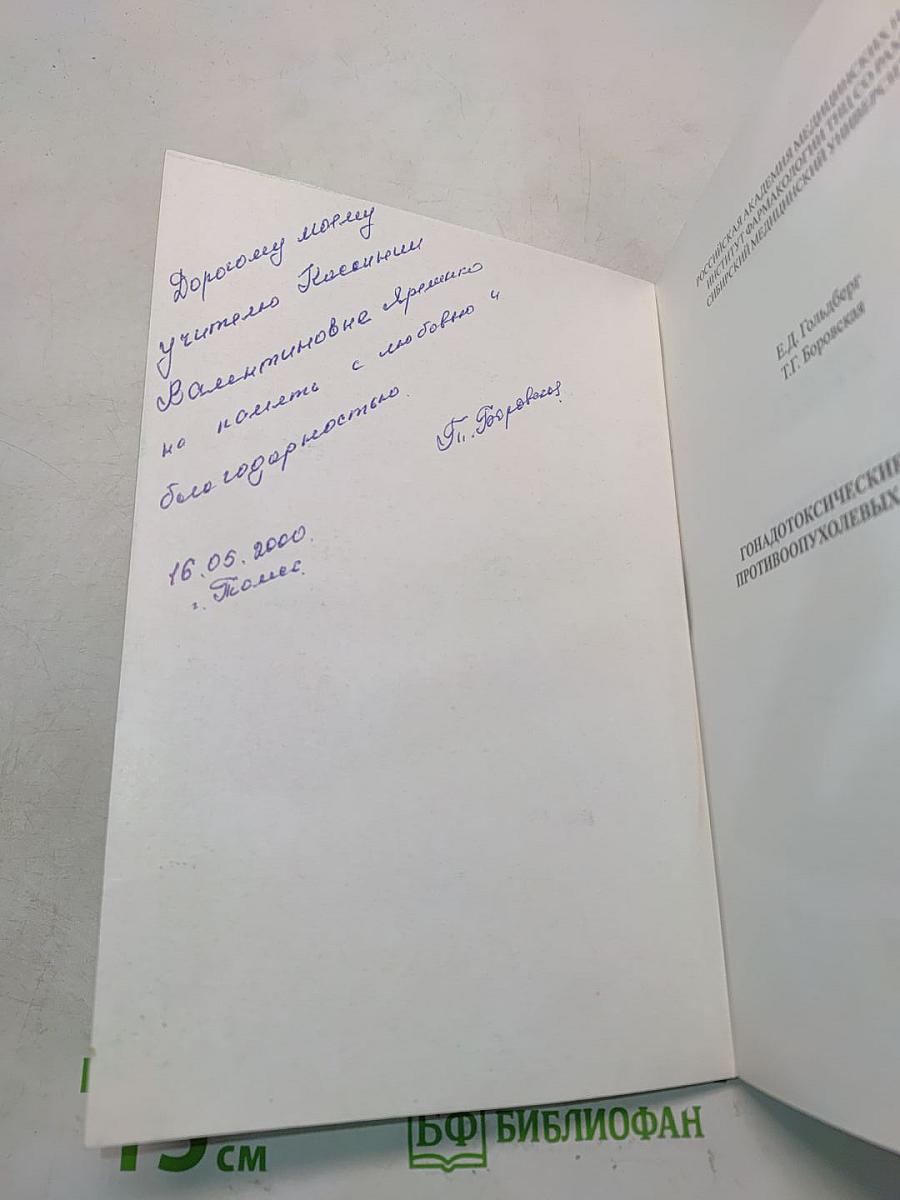 Дорогому моему
учителю Кассинии
Валентиновне Яременко
на память с любовью и
благодарностью.
Т. Боровская
16.05.2000.
г. Томск.
РОССИЙСКАЯ АКАДЕМИЯ МЕДИЦИНСКИХ
ИНСТИТУТ ФАРМАКОЛОГИИ ТНЦ СО РАМН
СИБИРСКИЙ МЕДИЦИНСКИЙ УНИВЕРСИ
Е.Д. Гольдберг
Т.Г. Боровская
ГОНАДОТОКСИЧЕСКИЕ
ПРОТИВООПУХОЛЕВЫХ
15 см
БФ БИБЛИОФАН